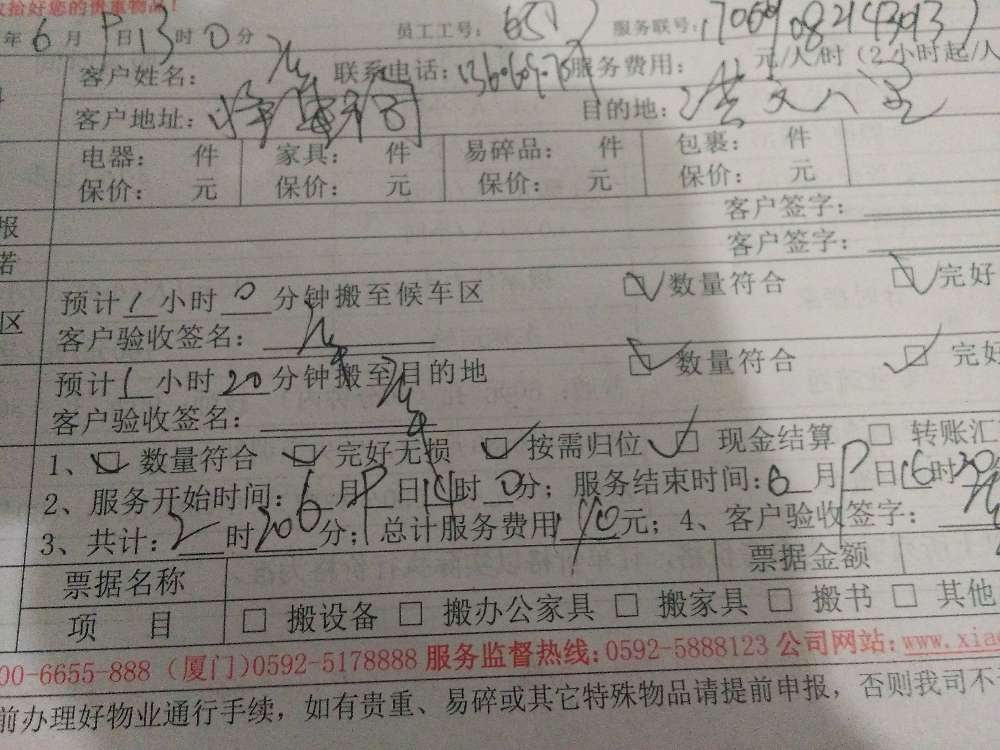 收拾好您的贵重物品！
年 6 月 9 日 13 时 0 分 员工工号： 服务联号：
客户姓名： 联系电话： 服务费用： 元/人/时（2小时起/人
客户地址： 目的地：
电器： 件 家具： 件 易碎品： 件 包裹： 件
保价： 元 保价： 元 保价： 元 保价： 元
报 客户签字：
诺 客户签字：
预计 1 小时 0 分钟搬至候车区 数量符合 完好
区 客户验收签名：
预计 1 小时 20 分钟搬至目的地 数量符合 完好
客户验收签名：
1、 数量符合 完好无损 按需归位 现金结算 转账汇
2、服务开始时间：6 月 9 日 14 时 0 分；服务结束时间：6 月 9 日 16 时 20
3、共计：2 时 20 分；总计服务费用 元；4、客户验收签字：
票据名称 票据金额
项 目 □ 搬设备 □ 搬办公家具 □ 搬家具 □ 搬书 □ 其他
00-6655-888（厦门）0592-5178888 服务监督热线：0592-5888123 公司网站：www.xia
前办理好物业通行手续，如有贵重、易碎或其它特殊物品请提前申报，否则我司不